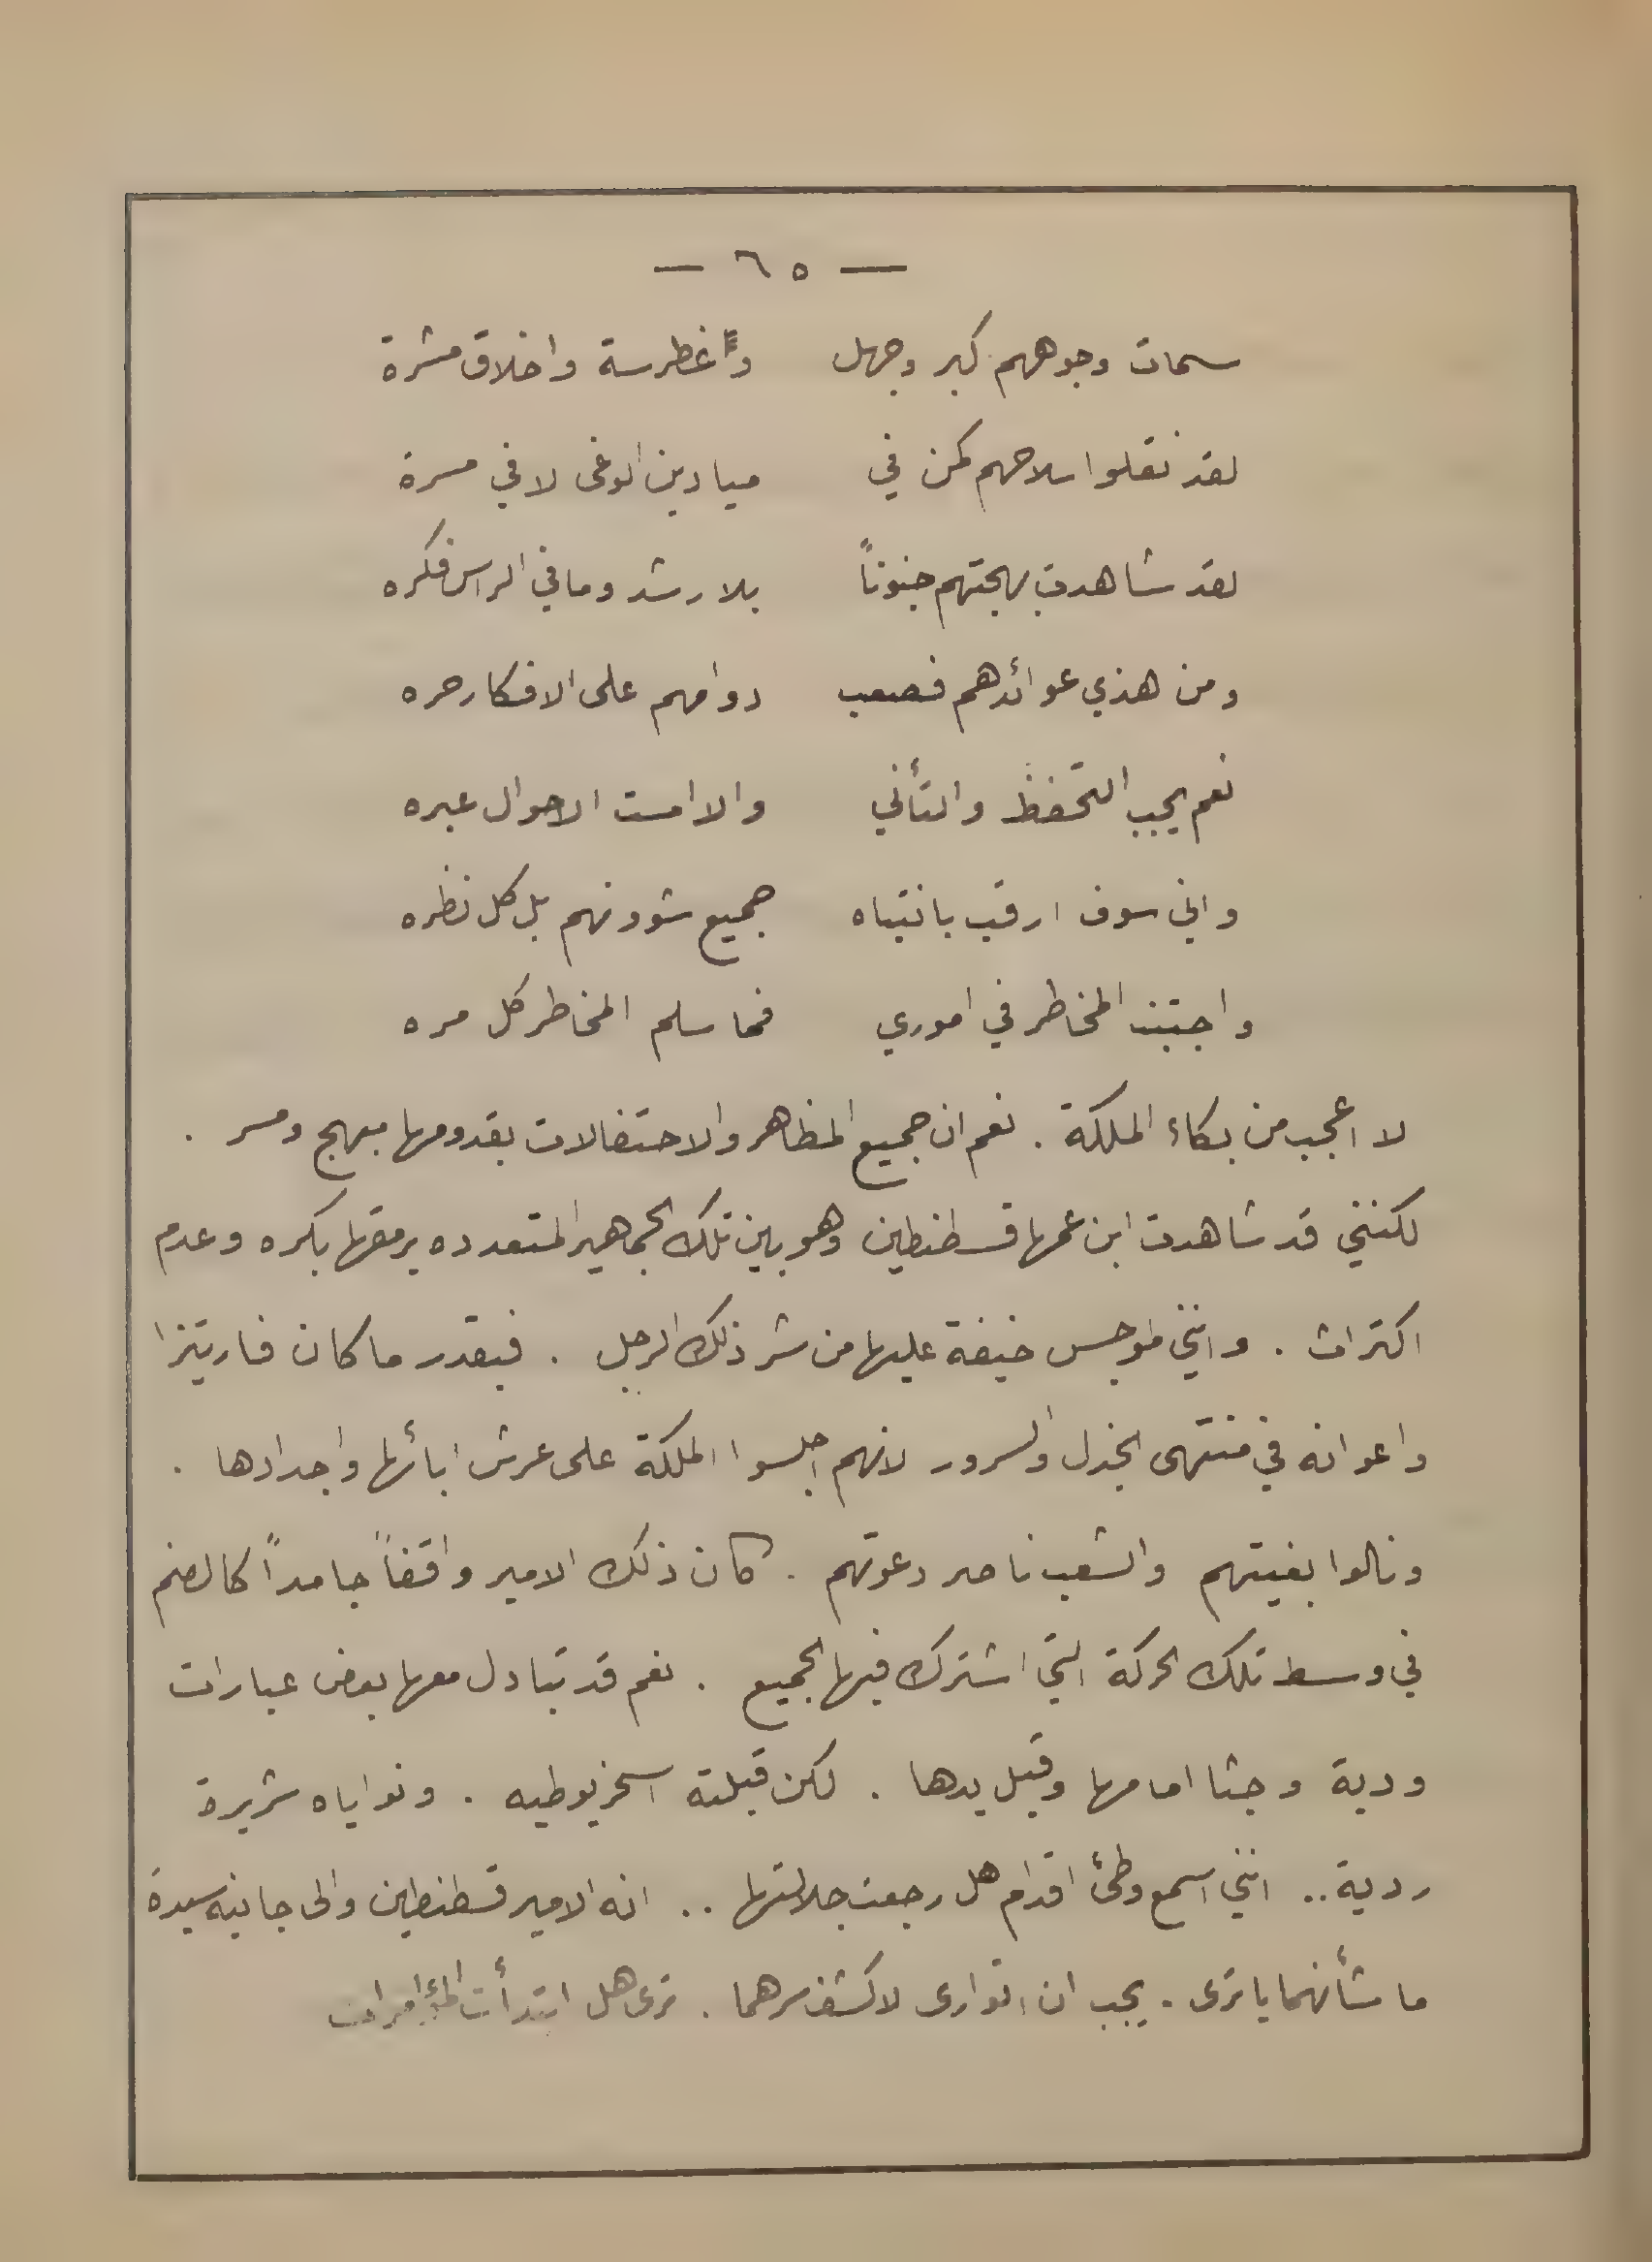 — ٦٥ —
سمات وجوههم كبر وجهل وغطرسة واخلاق مشرة
لقد نقلوا سلاحهم كمن في ميادين الوغى لا في مسرة
لقد شاهدت بهجتهم جنوناً بلا رشد وما في الراس فكره
ومن هذي عوائدهم فصعب دوامهم على الافكار حره
نعم يجب التحفظ والتأني والا امست الاحوال عبره
واني سوف ارقب بانتباه جميع شوونهم بل كل نظره
واجتنب المخاطر في اموري فما سلم المخاطر كل مره
لا اعجب من بكاء الملكة . نعم ان جميع المظاهر والاحتفالات بقدومها مبهج ومسر .
لكنني قد شاهدت ابن عمها قسطنطين وهو بين تلك الجماهير المتعدده يرمقها بكره وعدم
اكتراث . وانني لموجس خيفة عليها من شر ذلك الرجل . فبقدر ما كان فاريتزا
واعوانه في منتهى الجذل والسرور لانهم اجلسوا الملكة على عرش ابائها واجدادها .
ونالوا بغيتهم والشعب ناصر دعوتهم . كان ذلك الامير واقفاً جامداً كالصنم
في وسط تلك الحركة التي اشترك فيها الجميع . نعم قد تبادل معها بعض عبارات
ودية وجثا امامها وقبل يدها . لكن قبلته اسخريوطيه . ونواياه شريرة
ردية .. انني اسمع وطئ اقدام هل رجعت جلالتها .. انه الامير قسطنطين والى جانبه سيدة
ما شأنهما يا ترى . يجب ان اتوارى لاكشف سرهما . ترى هل ابتدأت المؤامرات